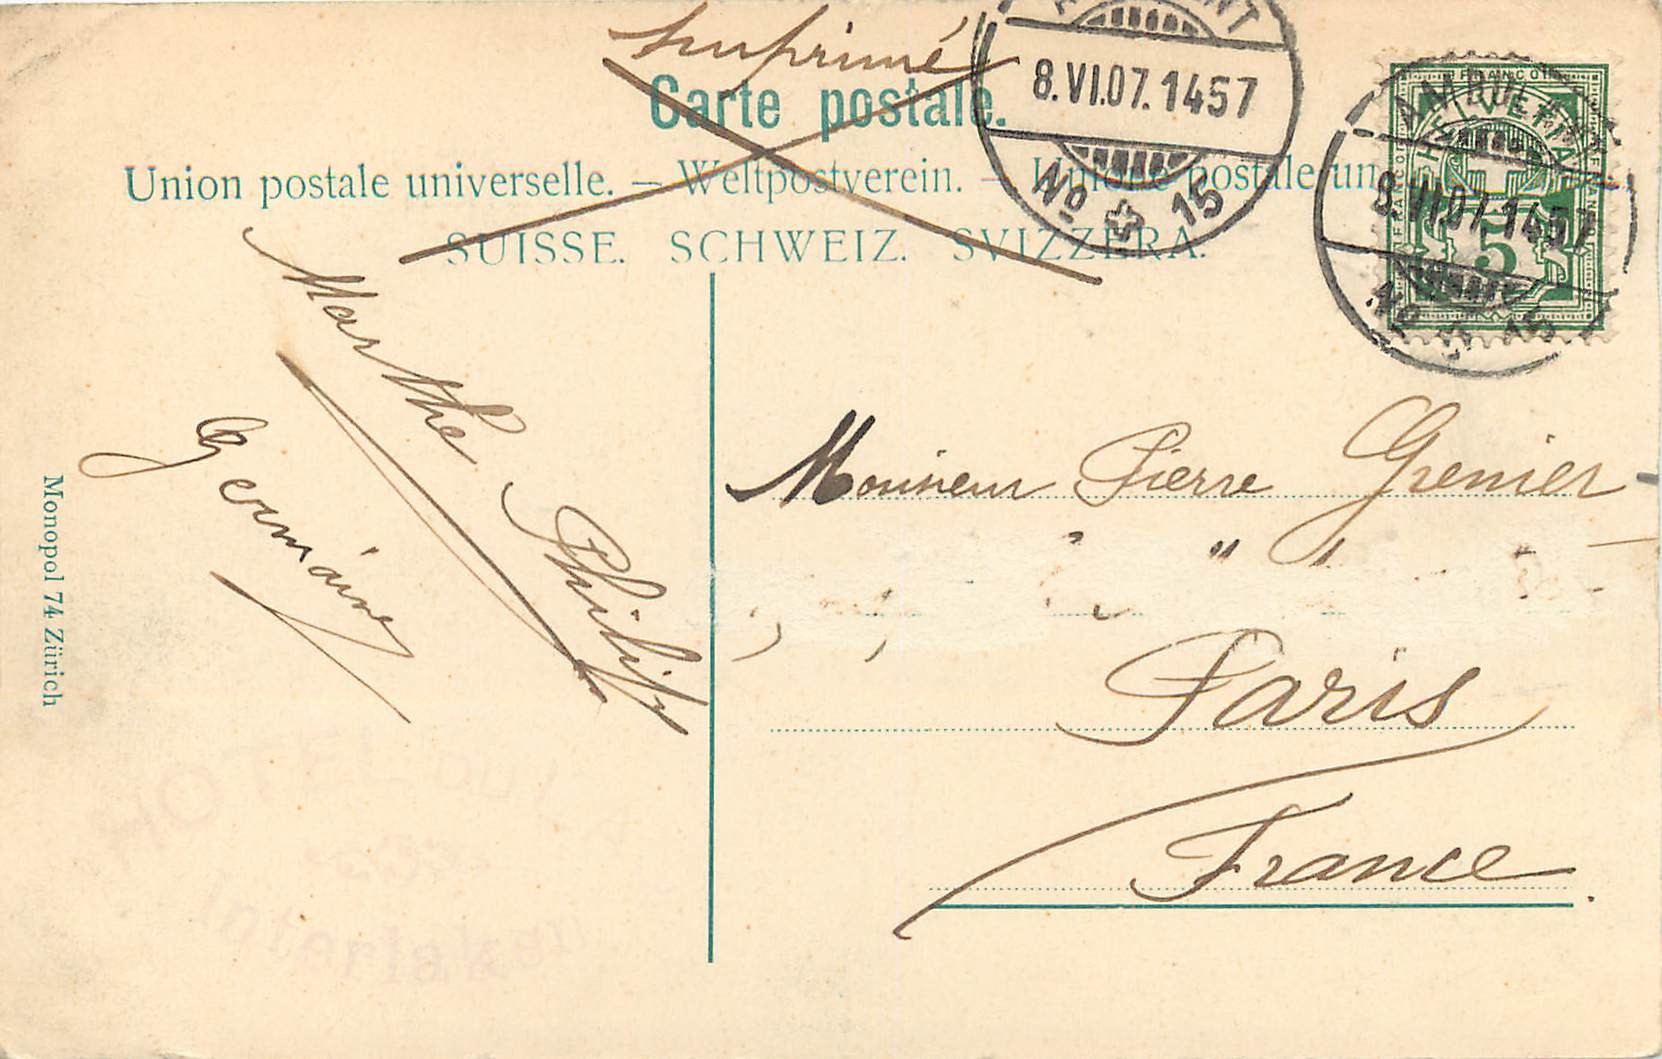 Imprimé
Carte postale.
Union postale universelle. – Weltpostverein. – Unione postale un
SUISSE. SCHWEIZ. SVIZZERA.
8.VI.07.1457
No 15
FRANCO
HELVETIA
AMBULANT
8.VI.07.1457
5
No 15
Marthe Philipp
Germaine
Monsieur Pierre Grenier
Paris
France
Monopol 74 Zürich
HOTEL DU
Interlaken